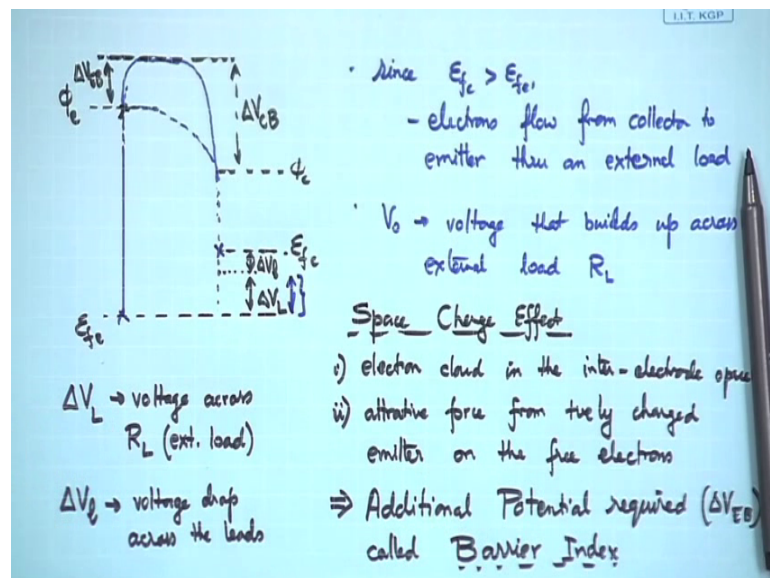 I.I.T. KGP
ΔV_EB
φ_e
ΔV_CB
φ_c
ε_fc
ΔV_l
ΔV_L
ε_fe
ΔV_L → voltage across
R_L (ext. load)
ΔV_l → voltage drop
across the leads
· since ε_fc > ε_fe,
- electrons flow from collector to
emitter thru an external load
· V_o → voltage that builds up across
external load R_L
Space Charge Effect
i) electron cloud in the inter-electrode space
ii) attrative force from +vely charged
emitter on the free electrons
⇒ Additional Potential required (ΔV_EB)
called Barrier Index